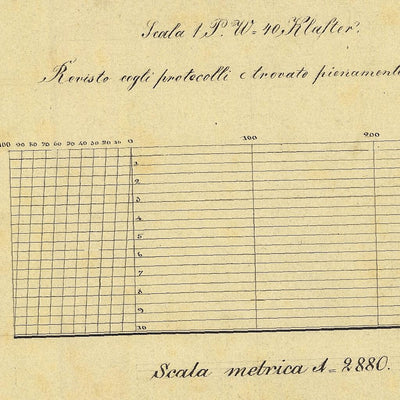 Scala 1 P. W= 40 Klafter.
Revisto cogli protocolli e trovato pienament
100 90 80 70 60 50 40 30 20 10 0 100 200
1
2
3
4
5
6
7
8
9
10
Scala metrica 1=2880.